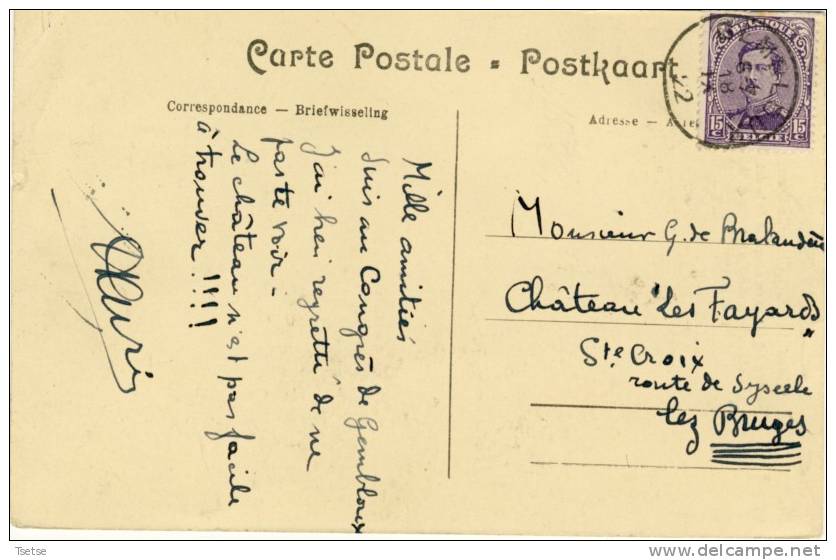 Carte Postale - Postkaart
Correspondance — Briefwisseling
Adresse —
BELGIQUE
15 C
15 C
BELGIË
18
IX
22
Mille amitiés
Suis au Congrès de Gembloux
J'ai hier regretté de ne
pas te voir -
Le château n'est pas facile
à trouver !!!!
Monsieur G. de
Château "Les Fayards"
Ste Croix
route de Syseele
lez Bruges
Tsetse
www.delcampe.net